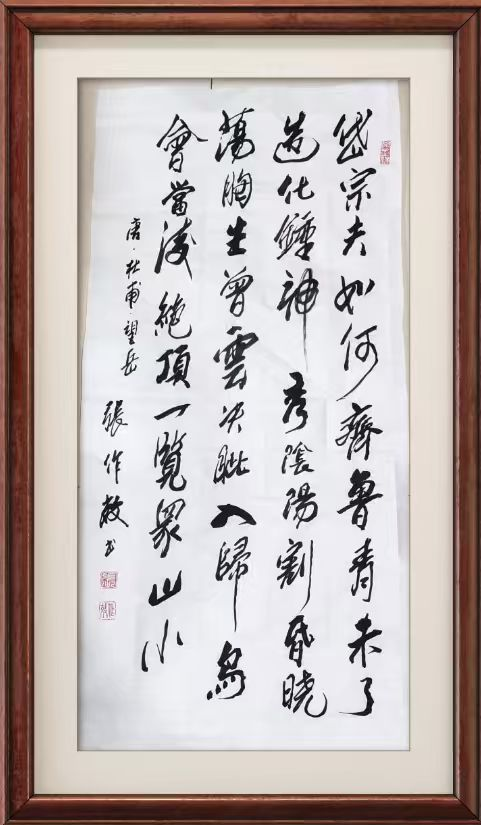 岱宗夫如何齊魯青未了
造化鍾神秀陰陽割昏曉
蕩胸生曾雲决眦入歸鳥
會當凌絕頂一覽眾山小
唐·杜甫·望岳
張作书